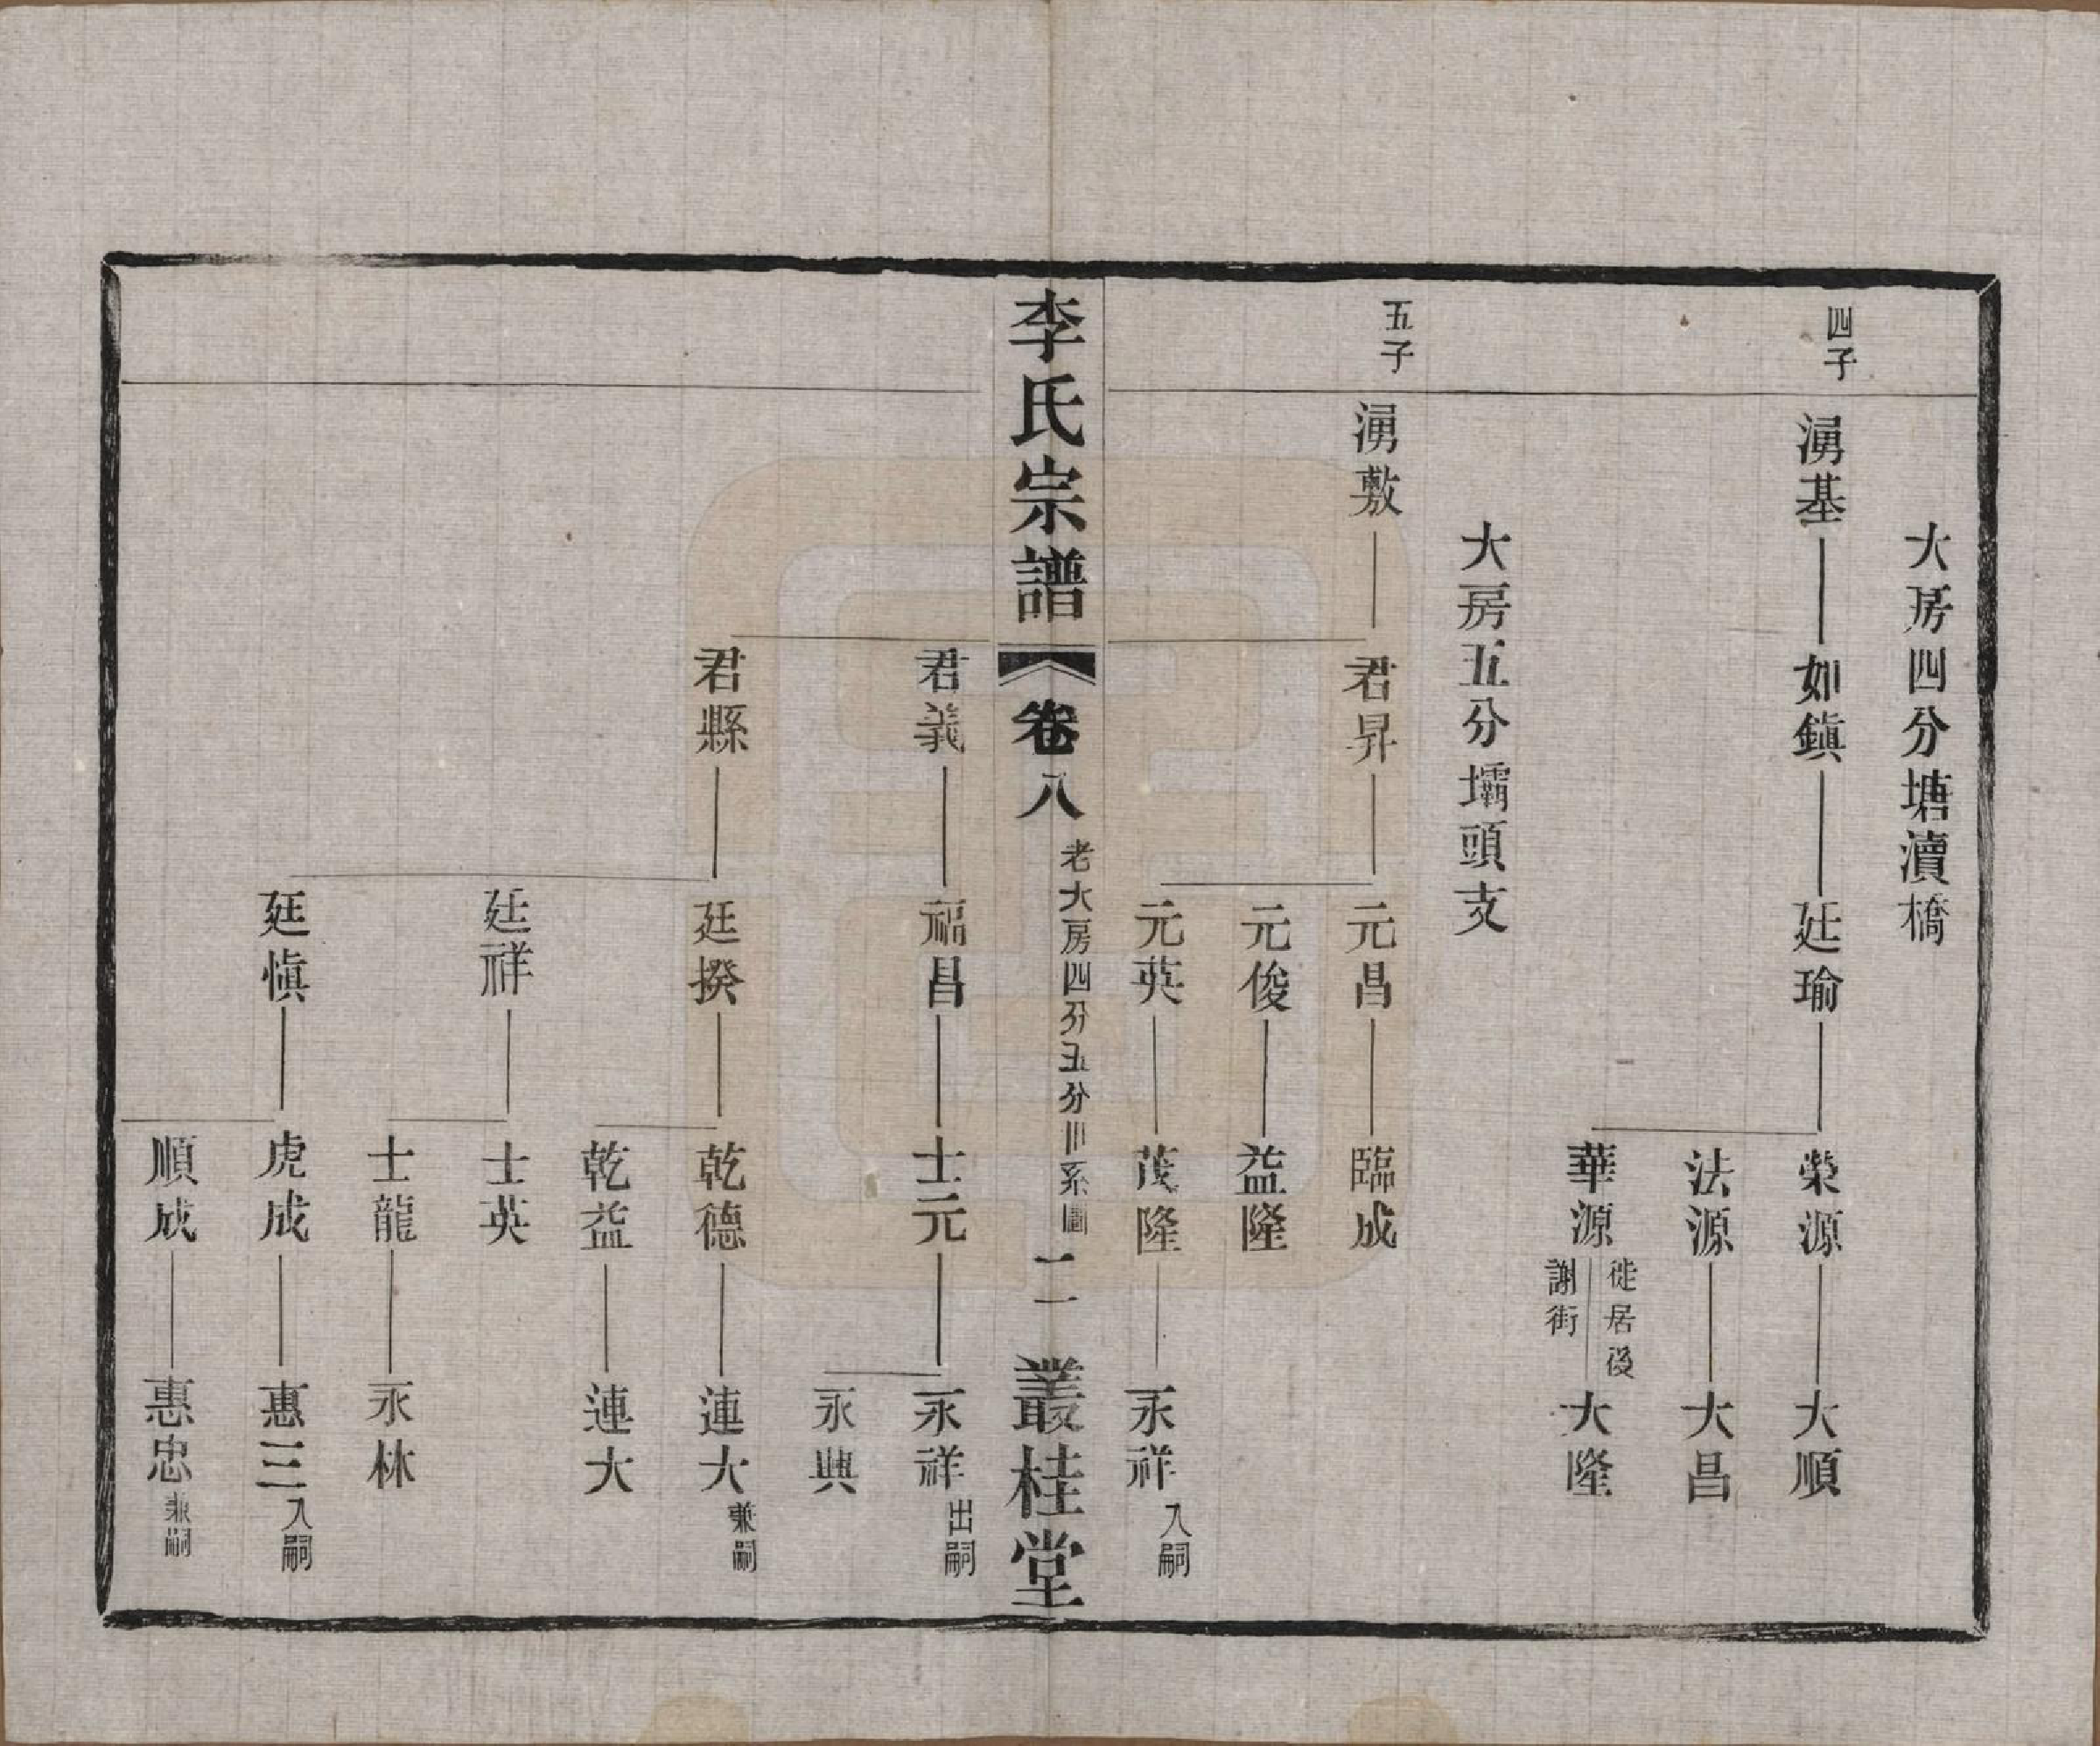 大房四分塘瀆橋
四子
湧基 如鎮 廷瑜 榮源 大順
法源 大昌
華源 徙居後謝街 大隆
大房五分壩頭支
五子
湧敷 君昇 元昌 臨成
元俊 益隆
元英 茂隆 永祥 入嗣
李氏宗譜 卷八 老大房四分五分世系圖 二 叢桂堂
君義 福昌 士元 永祥 出嗣
永興
君縣 廷揆 乾德 連大 兼嗣
乾益 連大
廷祥 士英
士龍 永林
廷慎 虎成 惠三 入嗣
順成 惠忠 兼嗣